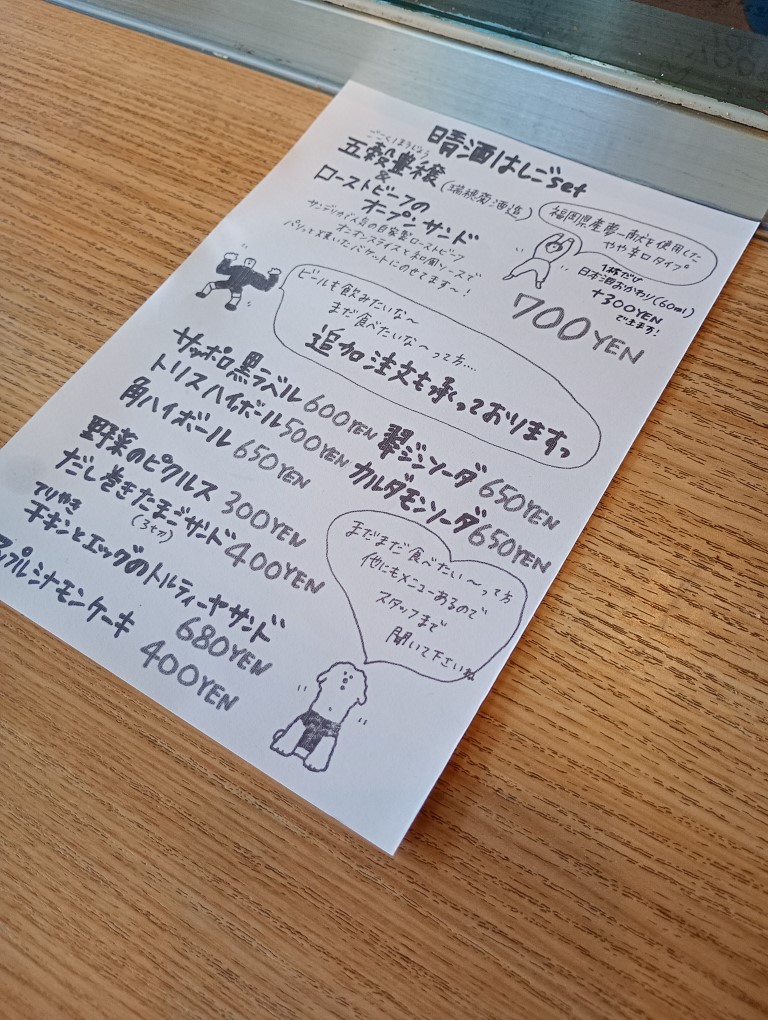 晴酒はしごset
ごこくほうじょう
五穀豊穣(瑞穂菊酒造)
&
ローストビーフの
オープンサンド
サンデリカで人気の自家製ローストビーフ
オニオンスライスと和風ソースで
パリッと焼いたバゲットにのせてます〜!
福岡県産夢一献を使用した
やや辛口タイプ
1杯だけ
日本酒おかわり(60ml)
+300YEN
できます!
700YEN
ビールも飲みたいな〜
まだ食べたいな〜って方....
追加注文も承っておりますっ
サッポロ黒ラベル 600YEN
トリスハイボール 500YEN
角ハイボール 650YEN
翠ジンソーダ 650YEN
カルダモンソーダ 650YEN
野菜のピクルス 300YEN
だし巻きたまごサンド 400YEN
(3切)
てりやき
チキンとエッグのトルティーヤサンド
680YEN
アップルシナモンケーキ
400YEN
まだまだ食べたい〜って方
他にもメニューあるので
スタッフまで
聞いて下さいね